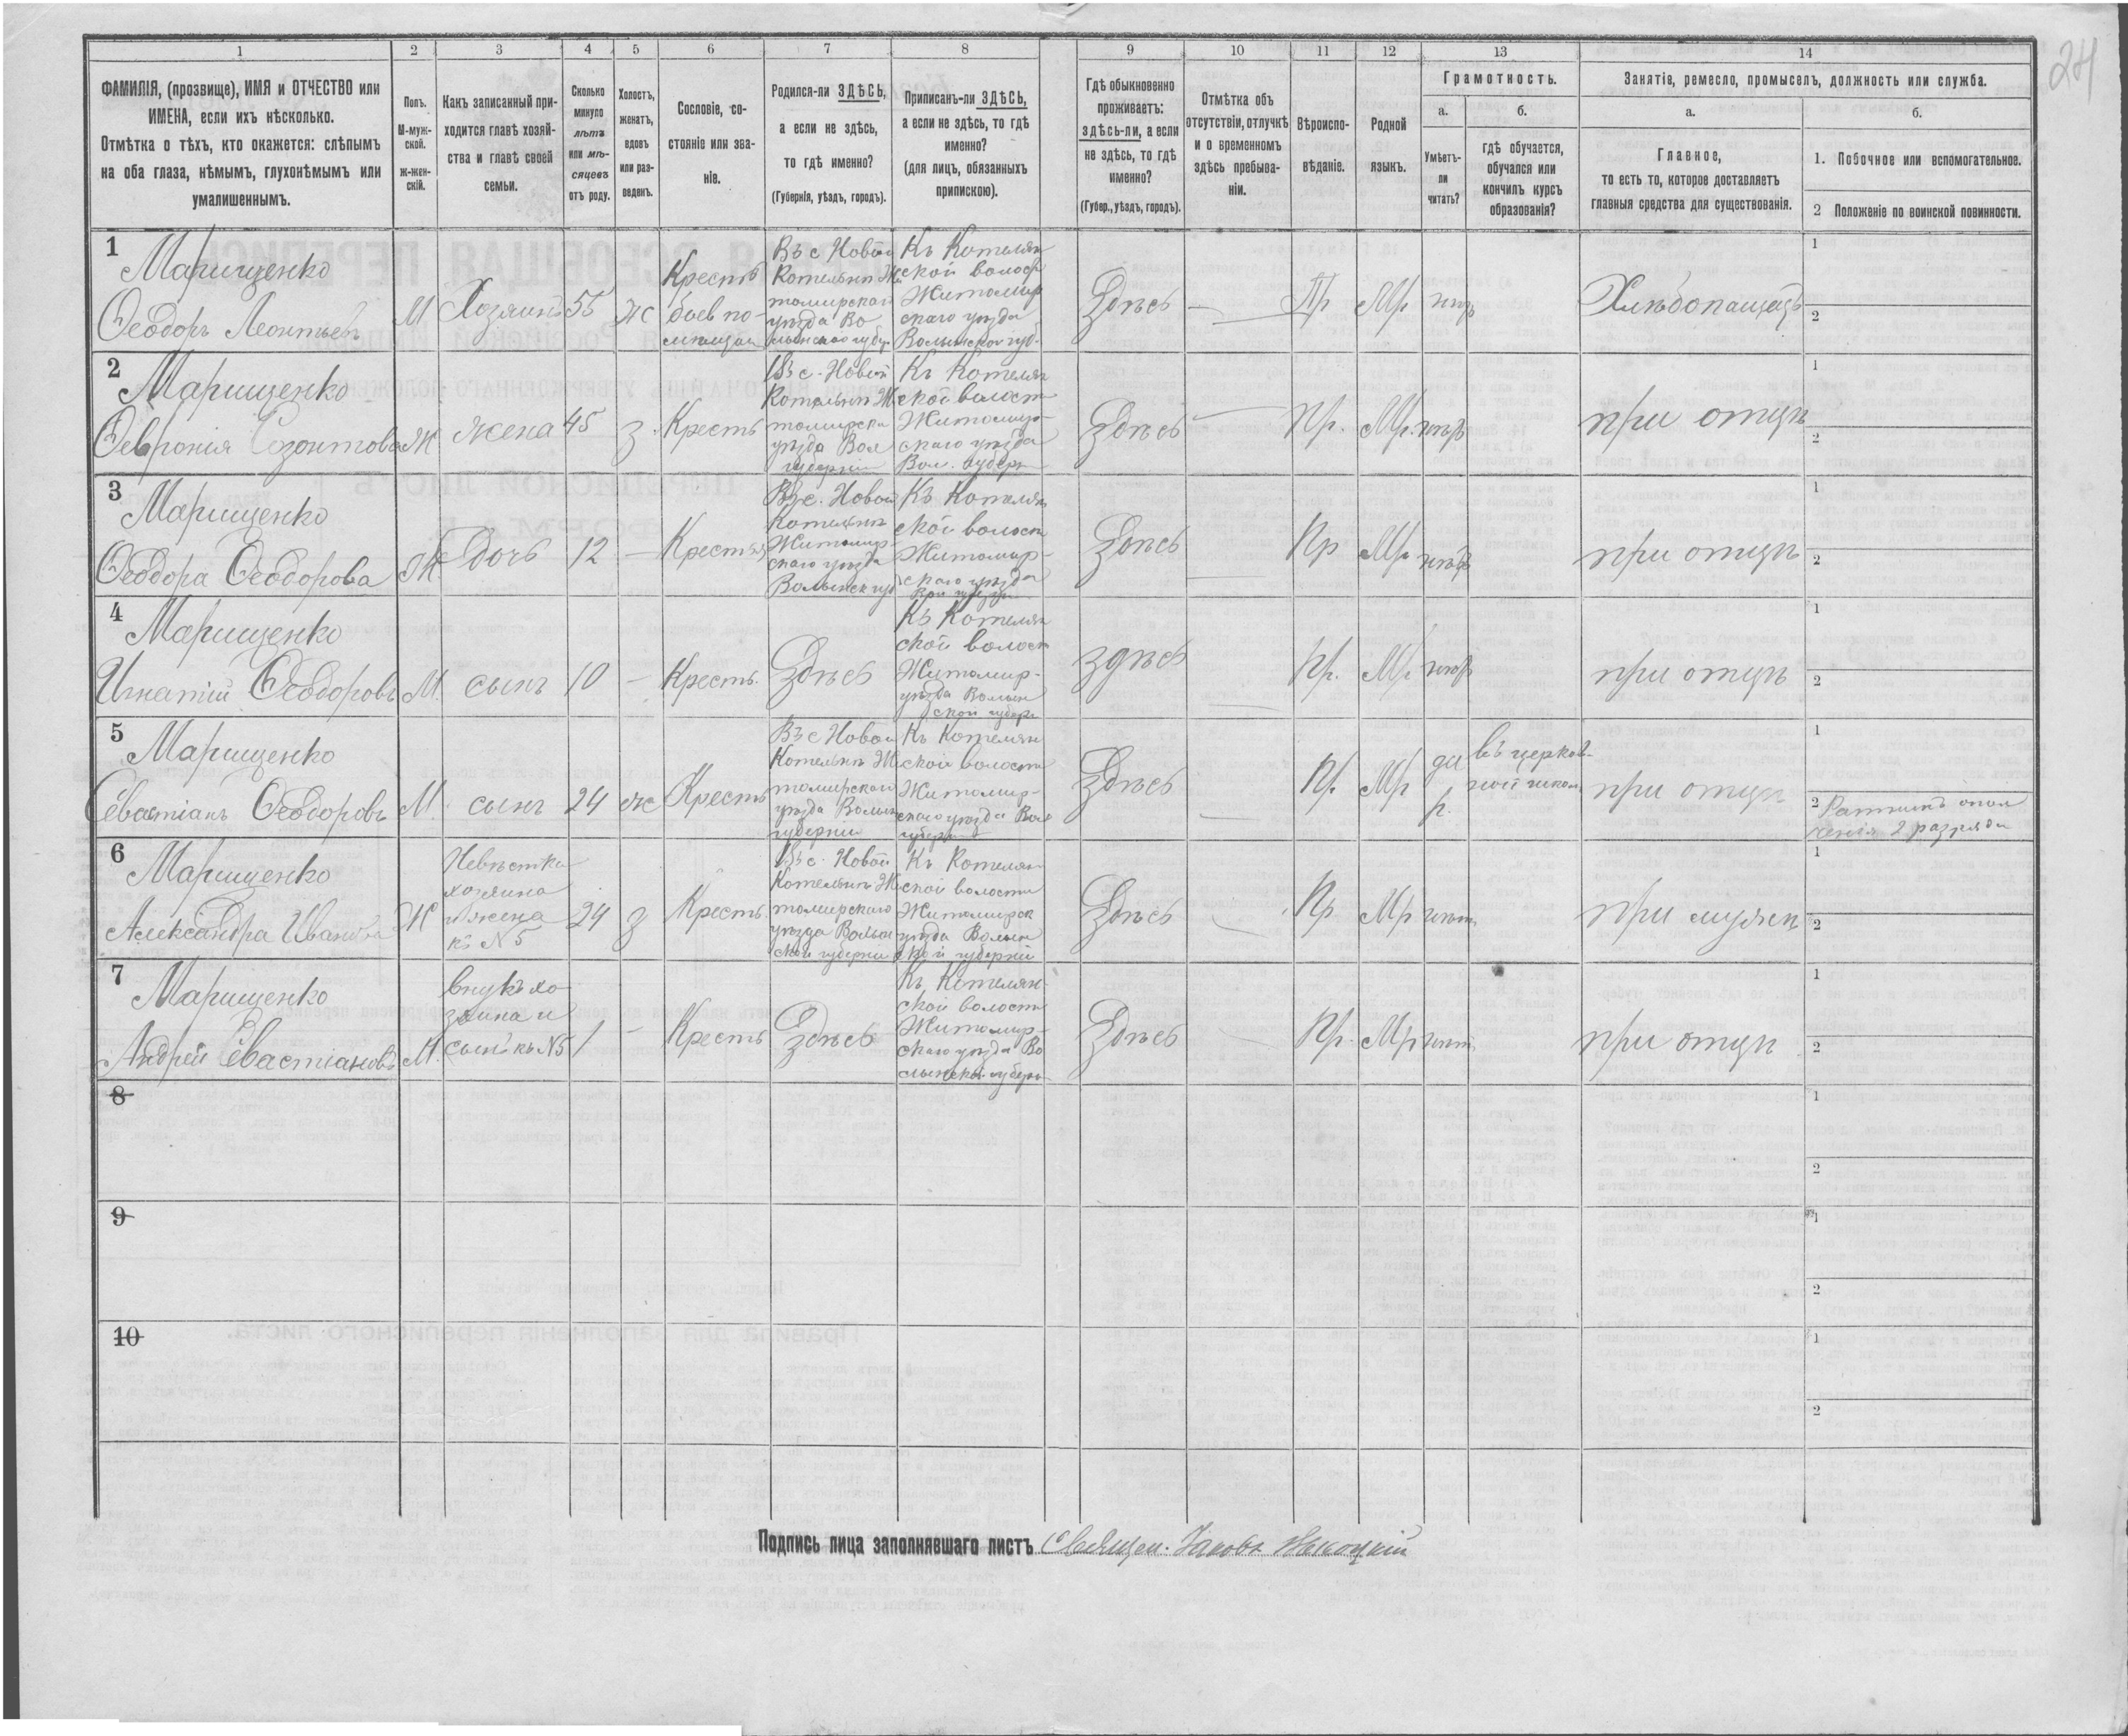 24
1 2 3 4 5 6 7 8 9 10 11 12 13 14
ФАМИЛІЯ, (прозвище), ИМЯ и ОТЧЕСТВО или
ИМЕНА, если ихъ нѣсколько.
Отмѣтка о тѣхъ, кто окажется: слѣпымъ
на оба глаза, нѣмымъ, глухонѣмымъ или
умалишеннымъ.
Полъ.
М-муж-
ской.
ж-жен-
скій.
Какъ записанный при-
ходится главѣ хозяй-
ства и главѣ своей
семьи.
Сколько
минуло
лѣтъ
или мѣ-
сяцевъ
отъ роду.
Холостъ,
женатъ,
вдовъ
или раз-
веденъ.
Сословіе, со-
стояніе или зва-
ніе.
Родился-ли ЗДѢСЬ,
а если не здѣсь,
то гдѣ именно?
(Губернія, уѣздъ, городъ).
Приписанъ-ли ЗДѢСЬ,
а если не здѣсь, то гдѣ
именно?
(для лицъ, обязанныхъ
припискою).
Гдѣ обыкновенно
проживаетъ:
здѣсь-ли, а если
не здѣсь, то гдѣ
именно?
(Губер., уѣздъ, городъ).
Отмѣтка объ
отсутствіи, отлучкѣ
и о временномъ
здѣсь пребыва-
ніи.
Вѣроиспо-
вѣданіе.
Родной
языкъ.
Грамотность.
а.
Умѣетъ-
ли
читать?
б.
гдѣ обучается,
обучался или
кончилъ курсъ
образованія?
Занятіе, ремесло, промыселъ, должность или служба.
а.
Главное,
то есть то, которое доставляетъ
главныя средства для существованія.
б.
1. Побочное или вспомогательное.
2 Положеніе по воинской повинности.
1
Марищенко
Ѳеодоръ Леонтьевъ
М
Хозяинъ
55
ж
Кресть
Въ с Новой
Котельнѣ Жи
томирскаго
уѣзда Во
лынской губер
Къ Котелян
ской волос
Житомир
скаго уѣзда
Волынской губ.
Здѣсь
—
Пр
Мр
нѣтъ
Хлѣбопашецъ
1
2
2
Марищенко
Ѳевронія Созонтова
Ж
жена
45
з.
Кресть
Въ с. Новой
Котельнѣ Жи
томирска
уѣзда Вол
губерніи
Къ Котелян
ской волост
Житомир-
скаго уѣзда
Вол. губерн
Здѣсь
—
Пр.
Мр.
нѣтъ
при отцѣ
1
2
3
Марищенко
Ѳеодора Ѳеодорова
Ж.
Дочь
12
—
Крестья
Въ с. Новой
Котельнѣ
Житомир-
скаго уѣзда
Волынск губ
Къ Котелян
ской волости
Житомир-
скаго уѣзда
Здѣсь
Пр
Мр
нѣтъ
при отцѣ
1
2
4
Марищенко
Игнатій Ѳеодоровъ
М.
сынъ
10
—
Кресть.
Здѣсь
Къ Котелян
ской волост
Житомир-
уѣзда Волын
ской губер
здѣсь
Пр.
Мр
нѣтъ
при отцѣ
1
2
5
Марищенко
Севастіанъ Ѳеодоровъ
М.
сынъ
24
ж
Кресть
Въ с Новой
Котельнѣ Жи
томирскаго
уѣзда Волын
губерніи
Къ Котелян
ской волости
Житомир-
скаго уѣзда Вол
губерн
Здѣсь
Пр.
Мр
да
р.
въ церков-
ной школ
при отцѣ
1
2 Ратникъ опол
ченія 2 разряда
6
Марищенко
Александра Иванова
Ж
Невѣстка
хозяина
и жена
къ №5
24
з
Кресть.
Въ с. Новой
Котельнѣ Жи
томирскаго
уѣзда Волын
ской губерніи
Къ Котелян
ской волости
Житомирск
уѣзда Волын
ской губерніи
Здѣсь
Пр
Мр
нѣтъ
при мужѣ
1
2
7
Марищенко
Андрей Севастіановъ
М.
внукъ хо
зяина и
сынъ къ №5
1
—
Кресть
Здѣсь
Къ Котелян-
ской волости
Житомир-
скаго уѣзда Во
лынской губерн
Здѣсь
Пр.
Мр
нѣтъ
при отцѣ
1
2
8
1
2
9
1
2
10
1
2
Подпись лица заполнявшаго листъ Священ. Іаковъ